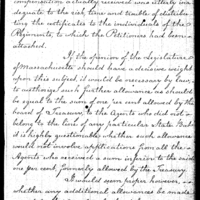 compensation actually received was utterly in-
adequate to the risk time and trouble of distribu-
ting the certificates to the individuals of the
Regiments, to which the Petitioner had been
attached.
If the opinion of the Legislature
of Massachusetts should have a decisive weight
upon this subject it would be necessary by law,
to authorise such further allowance as should
be equal to the sum of one per cent allowed by the
board of Treasury to the Agents who did not
belong to the line of any particular State. But
it is highly questionable whether such allowance
would not involve applications from all the
Agents who received a sum inferior to the
one per cent formerly allowed by the Treasury.
It would seem proper however,
whether any additional allowances be made